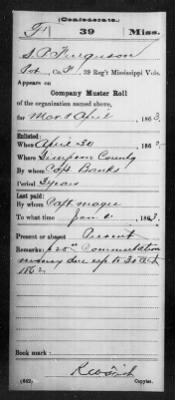 (Confederate.)
F 39 Miss.
S. P. Ferguson
Pvt, Co. F, 39 Reg't Mississippi Vols.
Appears on
Company Muster Roll
of the organization named above,
for Mar & April, 1863
Enlisted:
When April 30, 186
Where Simpson County
By whom Capt. Banks
Period 3 years
Last paid:
By whom Capt. Magee
To what time Jan 1, 1863.
Present or absent Present
Remarks: Commutation
money due up to 30
1862
Book mark:
(642) Copyist.